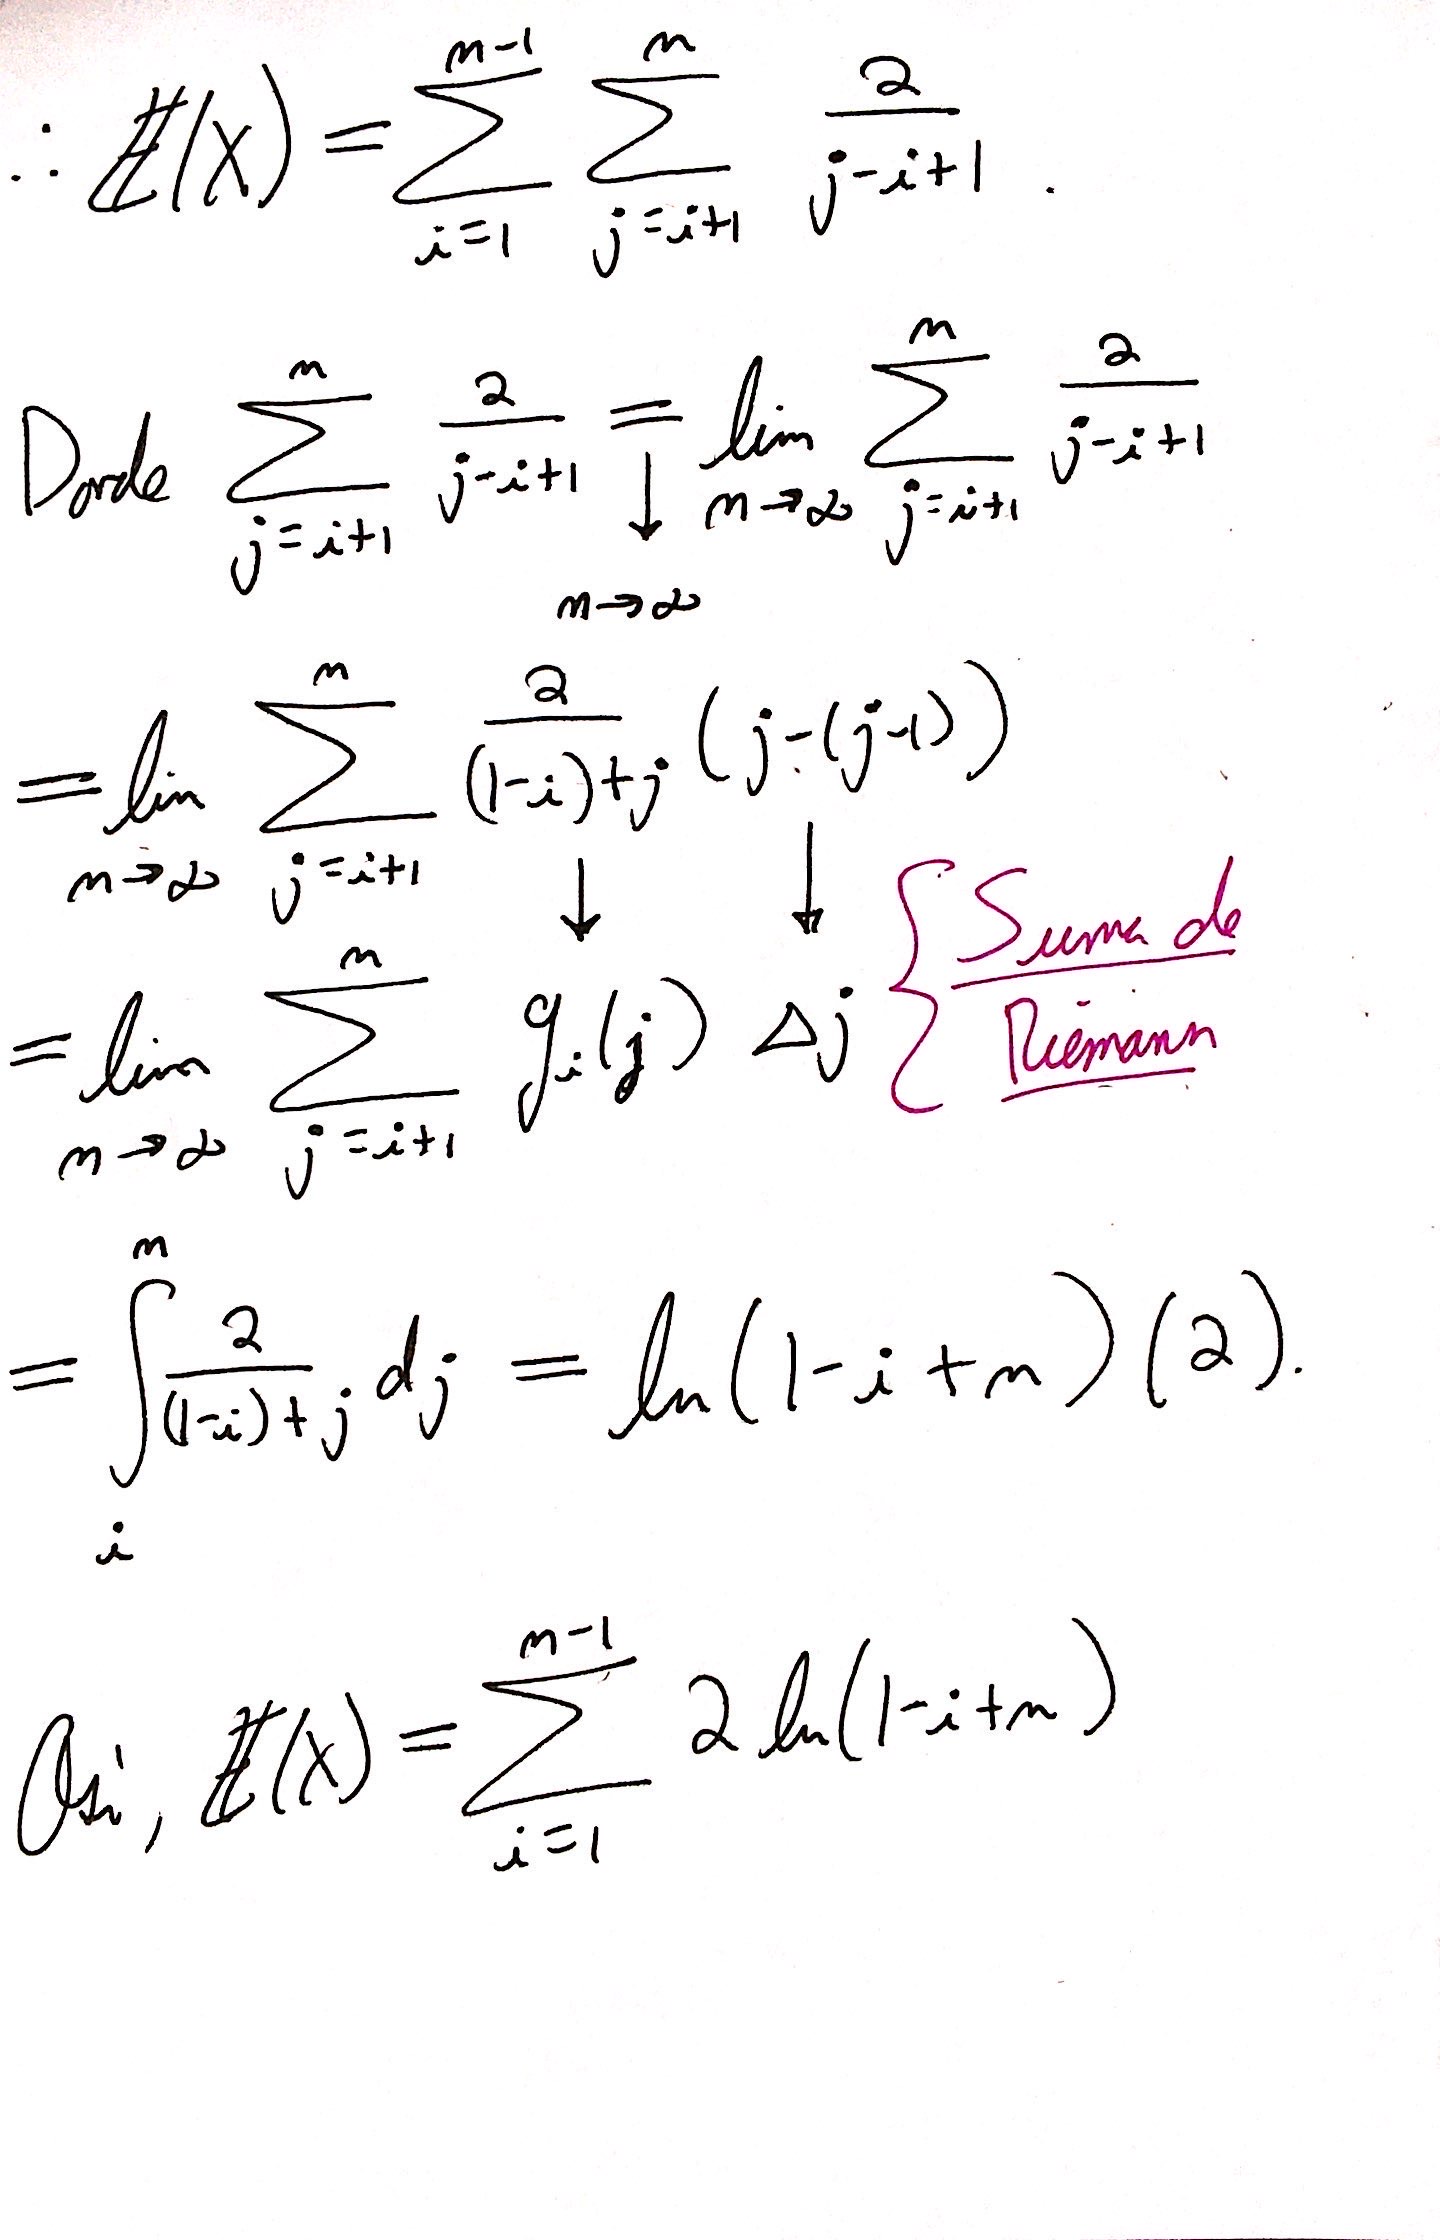 ∴ 𝔼(X) = \sum_{i=1}^{n-1} \sum_{j=i+1}^{n} \frac{2}{j-i+1} .
Donde \sum_{j=i+1}^{n} \frac{2}{j-i+1} = \lim_{n→∞} \sum_{j=i+1}^{n} \frac{2}{j-i+1}
↓
n→∞
= \lim_{n→∞} \sum_{j=i+1}^{n} \frac{2}{(1-i)+j} (j-(j-1))
↓ ↓
= \lim_{n→∞} \sum_{j=i+1}^{n} g_i(j) Δj { Suma de
Riemann
= \int_{i}^{n} \frac{2}{(1-i)+j} dj = ln(1-i+n)(2).
Asi, 𝔼(X) = \sum_{i=1}^{n-1} 2 ln(1-i+n)